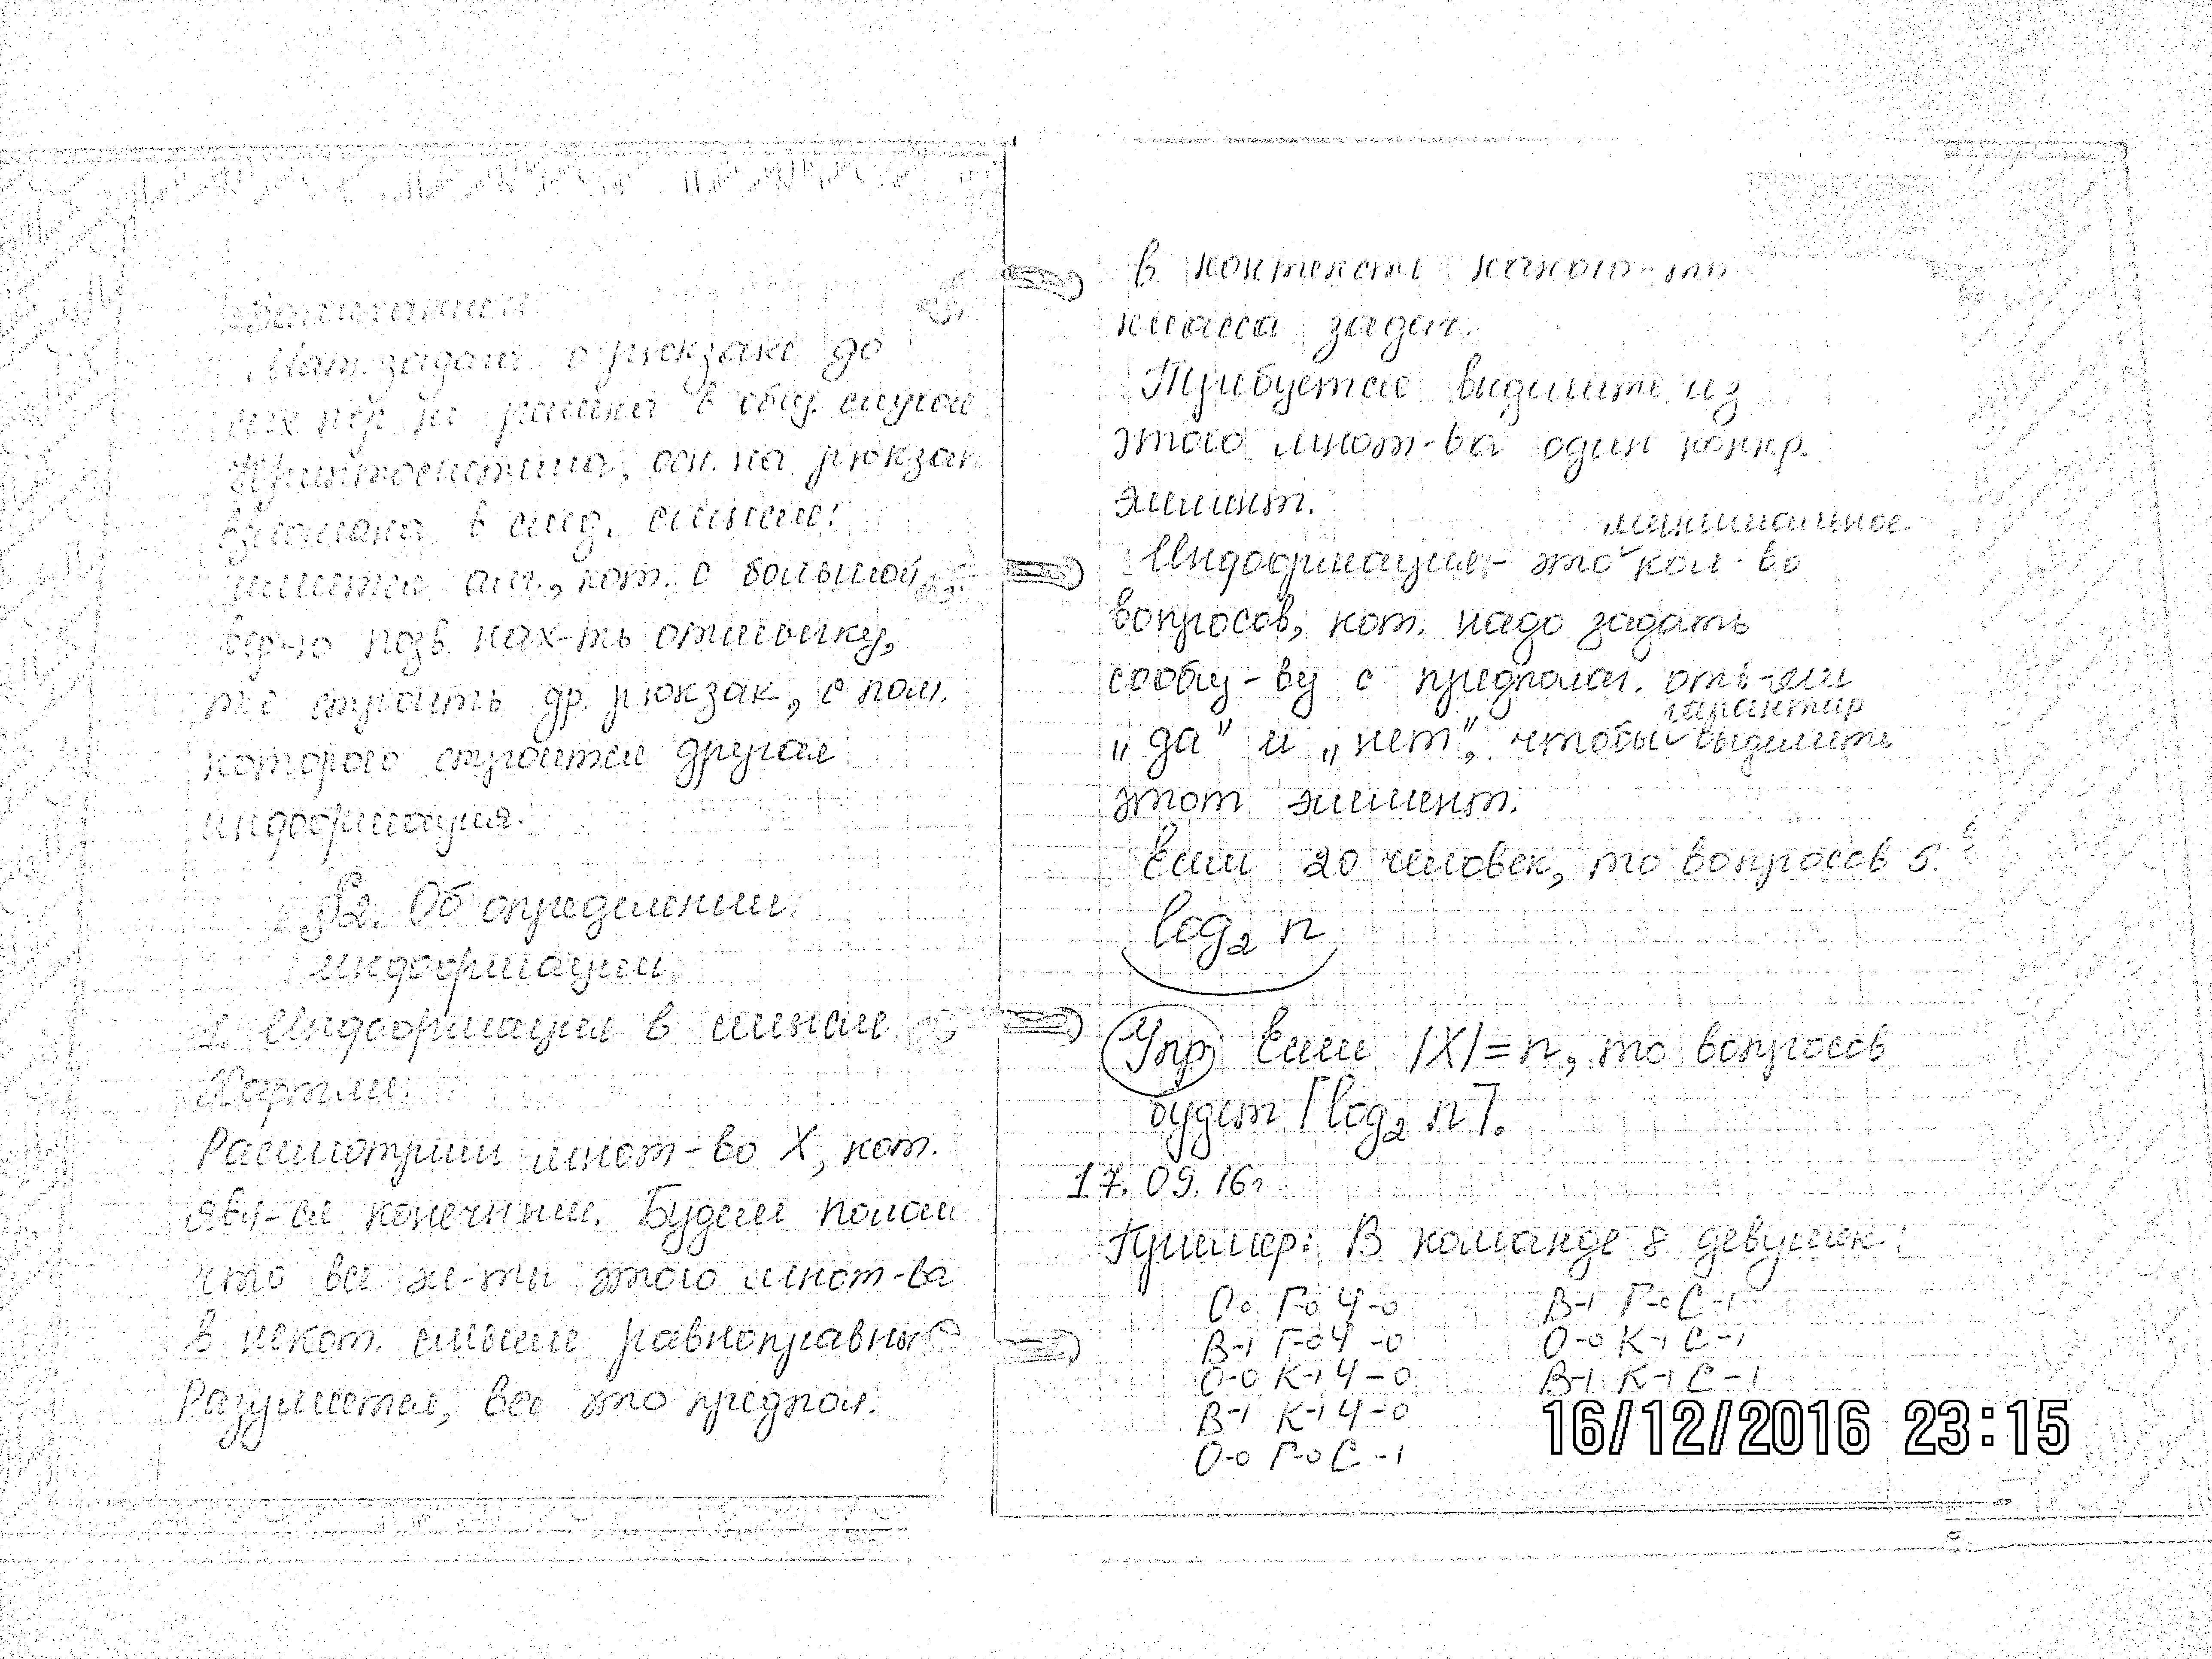 Мат. задача о рюкзаке до
сих пор не решена в общ. случае.
Криптосистема, осн. на рюкзаке
взломана в след. смысле:
имеется алг., кот. с большой
вер-ю позв.
строить др. рюкзак, с пом.
которого строится другая
информация.
§2. Об определении
информации.
1. Информация в смысле
Хартли.
Рассмотрим множ-во X, кот.
явл-ся конечным. Будем полаг.
что все эл-ты этого множ-ва
в некот. смысле равноправные
Разумеется, все это предпол.
в контексте какого-то
класса задач.
Требуется выделить из
этого множ-ва один конкр.
элемент.
минимальное
Информация - это кол-во
вопросов, кот. надо задать
сообщ-ву с предполаг. отв-ми
гарантир
„да" и „нет", чтобы выделить
этот элемент.
Если 20 человек, то вопросов 5.
log₂ n
Упр Если |X|=n, то вопросов
будет ⌈log₂ n⌉.
17.09.16г
Пример: В команде 8 девушек:
О-0 Г-0 Ч-0
В-1 Г-0 Ч-0
О-0 К-1 Ч-0
В-1 К-1 Ч-0
О-0 Г-0 С-1
В-1 Г-0 С-1
О-0 К-1 С-1
В-1 К-1 С-1
16/12/2016 23:15